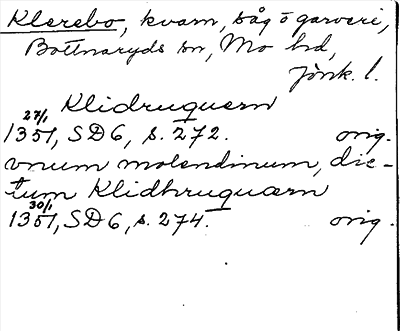 Klerebo, kvarn, såg o garveri,
Bottnaryds sn, Mo hd,
Jönk. l.
Klidruquærn
27/1 1351, SD 6, s. 272. orig.
vnum molendinum, dic-
tum Klidhruquærn
30/1 1351, SD 6, s. 274. orig.